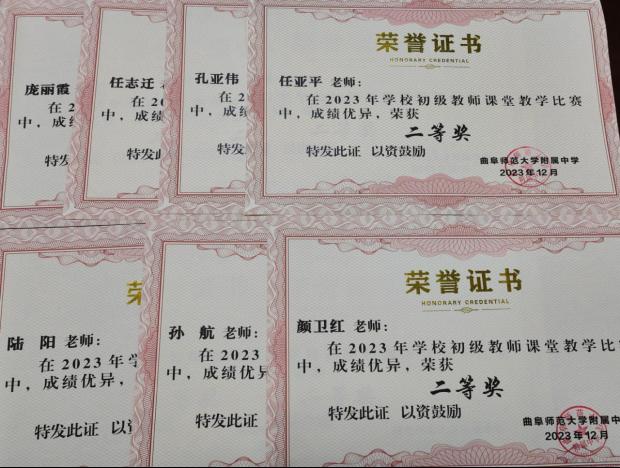 庞丽霞
在
中，成绩
特发
任志迁
在20
中，成绩
特发此
孔亚伟
在2
中，成绩
特发
荣誉证书
HONORARY CREDENTIAL
任亚平 老师：
在2023年学校初级教师课堂教学比赛
中，成绩优异，荣获
二等奖
特发此证 以资鼓励
曲阜师范大学附属中学
2023年12月
陆 阳 老师：
在2023年学
中，成绩优异，
特发此证 以
孙 航 老师：
在2023
中，成绩优异
特发此证
荣誉证书
HONORARY CREDENTIAL
颜卫红 老师：
在2023年学校初级教师课堂教学比
中，成绩优异，荣获
二等奖
特发此证 以资鼓励
曲阜师范大学附属中
2023年12月